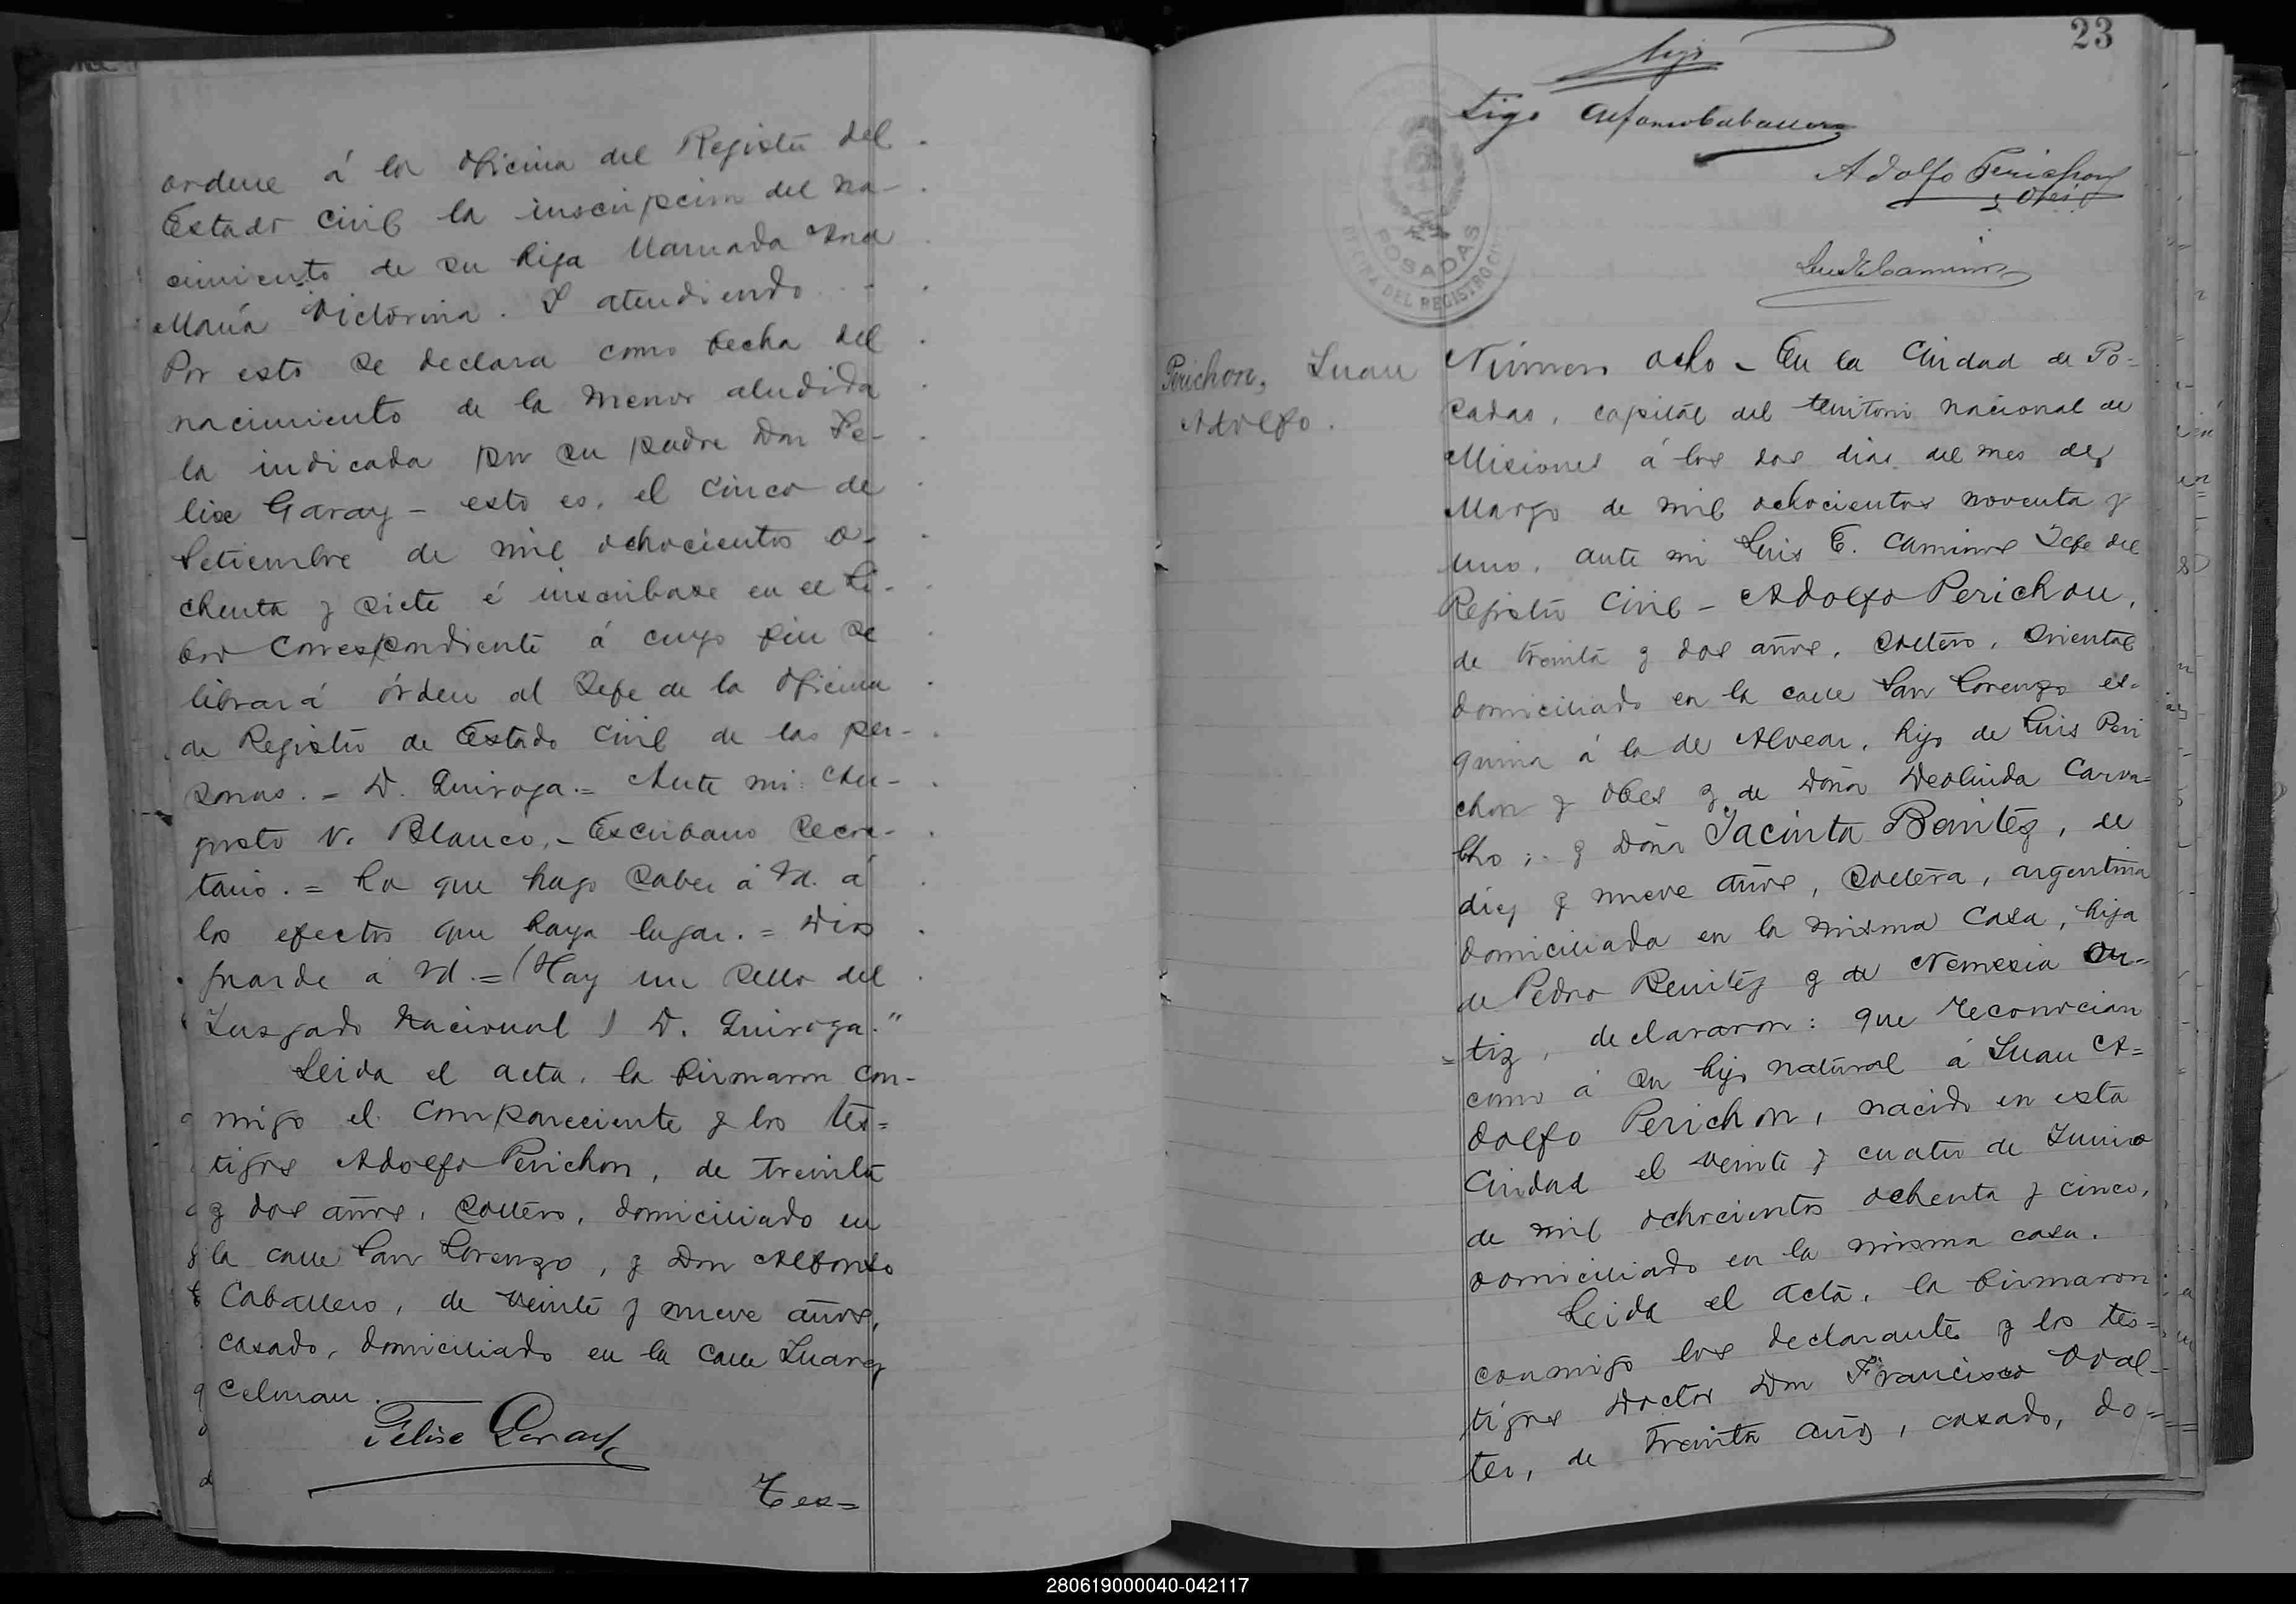 ordene á la oficina del Registro del
Estado Civil la inscripcion del na-
cimiento de su hija llamada Ana
María Victorina. Y atendiendo
Por esto se declara como fecha del
nacimiento de la menor aludida
la indicada por su padre Don Fe-
lise Garay - esto es, el cinco de
Setiembre de mil ochocientos o-
chenta y siete é inscribase en el Li-
bro correspondiente á cuyo fin se
librará órden al Jefe de la Oficina
de Registro de Estado Civil de las per-
sonas. = D. Quiroga. = Ante mi: Au-
gusto V. Blanco, - Escribano Secre-
tario. = Lo que hago saber á Vd. á
los efectos que haya lugar. = Dios
guarde á Vd. = (Hay un sello del
Juzgado Nacional) D. Quiroga."
Leida el acta, la firmaron con-
migo el compareciente y los tes=
tigos Adolfo Perichon, de treinta
y dos años, soltero, domiciliado en
la calle San Lorenzo, y Don Alfonso
Caballero, de veinte y nueve años,
casado, domiciliado en la calle Juarez
Celman.
Felise Garay
Tes=
23
tigo
tigo Alfonso Caballero
Adolfo Perichon
y Obes
Luis E. Camino
POSADAS
DEL REGISTRO CI
Perichon, Juan
Adolfo.
Número ocho - En la Ciudad de Po-
sadas, capital del territorio nacional de
Misiones á los dos dias del mes de
Marzo de mil ochocientos noventa y
uno, ante mi Luis E. Caminos Jefe del
Registro Civil - Adolfo Perichon,
de treinta y dos años, soltero, oriental
domiciliado en la calle San Lorenzo es-
quina á la de Alvear, hijo de Luis Peri
chon y Obes y de Doña Deolinda Carva=
lho; y Doña Jacinta Benitez, de
diez y nueve años, soltera, argentina
domiciliada en la misma casa, hija
de Pedro Benitez y de Nemesia Or-
tiz, declararon: que reconocian
como á su hijo natural á Juan A=
dolfo Perichon, nacido en esta
Ciudad el veinte y cuatro de Junio
de mil ochocientos ochenta y cinco,
domiciliado en la misma casa.
Leida el acta, la firmaron
conmigo los declarantes y los tes=
tigos Doctor Don Francisco Oval-
ter, de treinta años, casado, do=
280619000040-042117